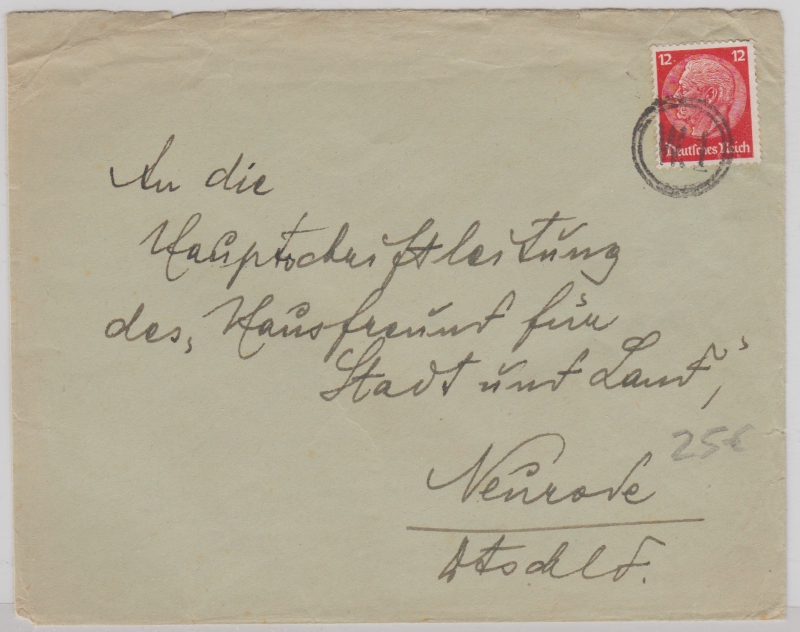 12 12
Deutsches Reich
An die
Hauptschriftleitung
des „Hausfreund für
Stadt und Land",
25€
Neurode
Dtschld.